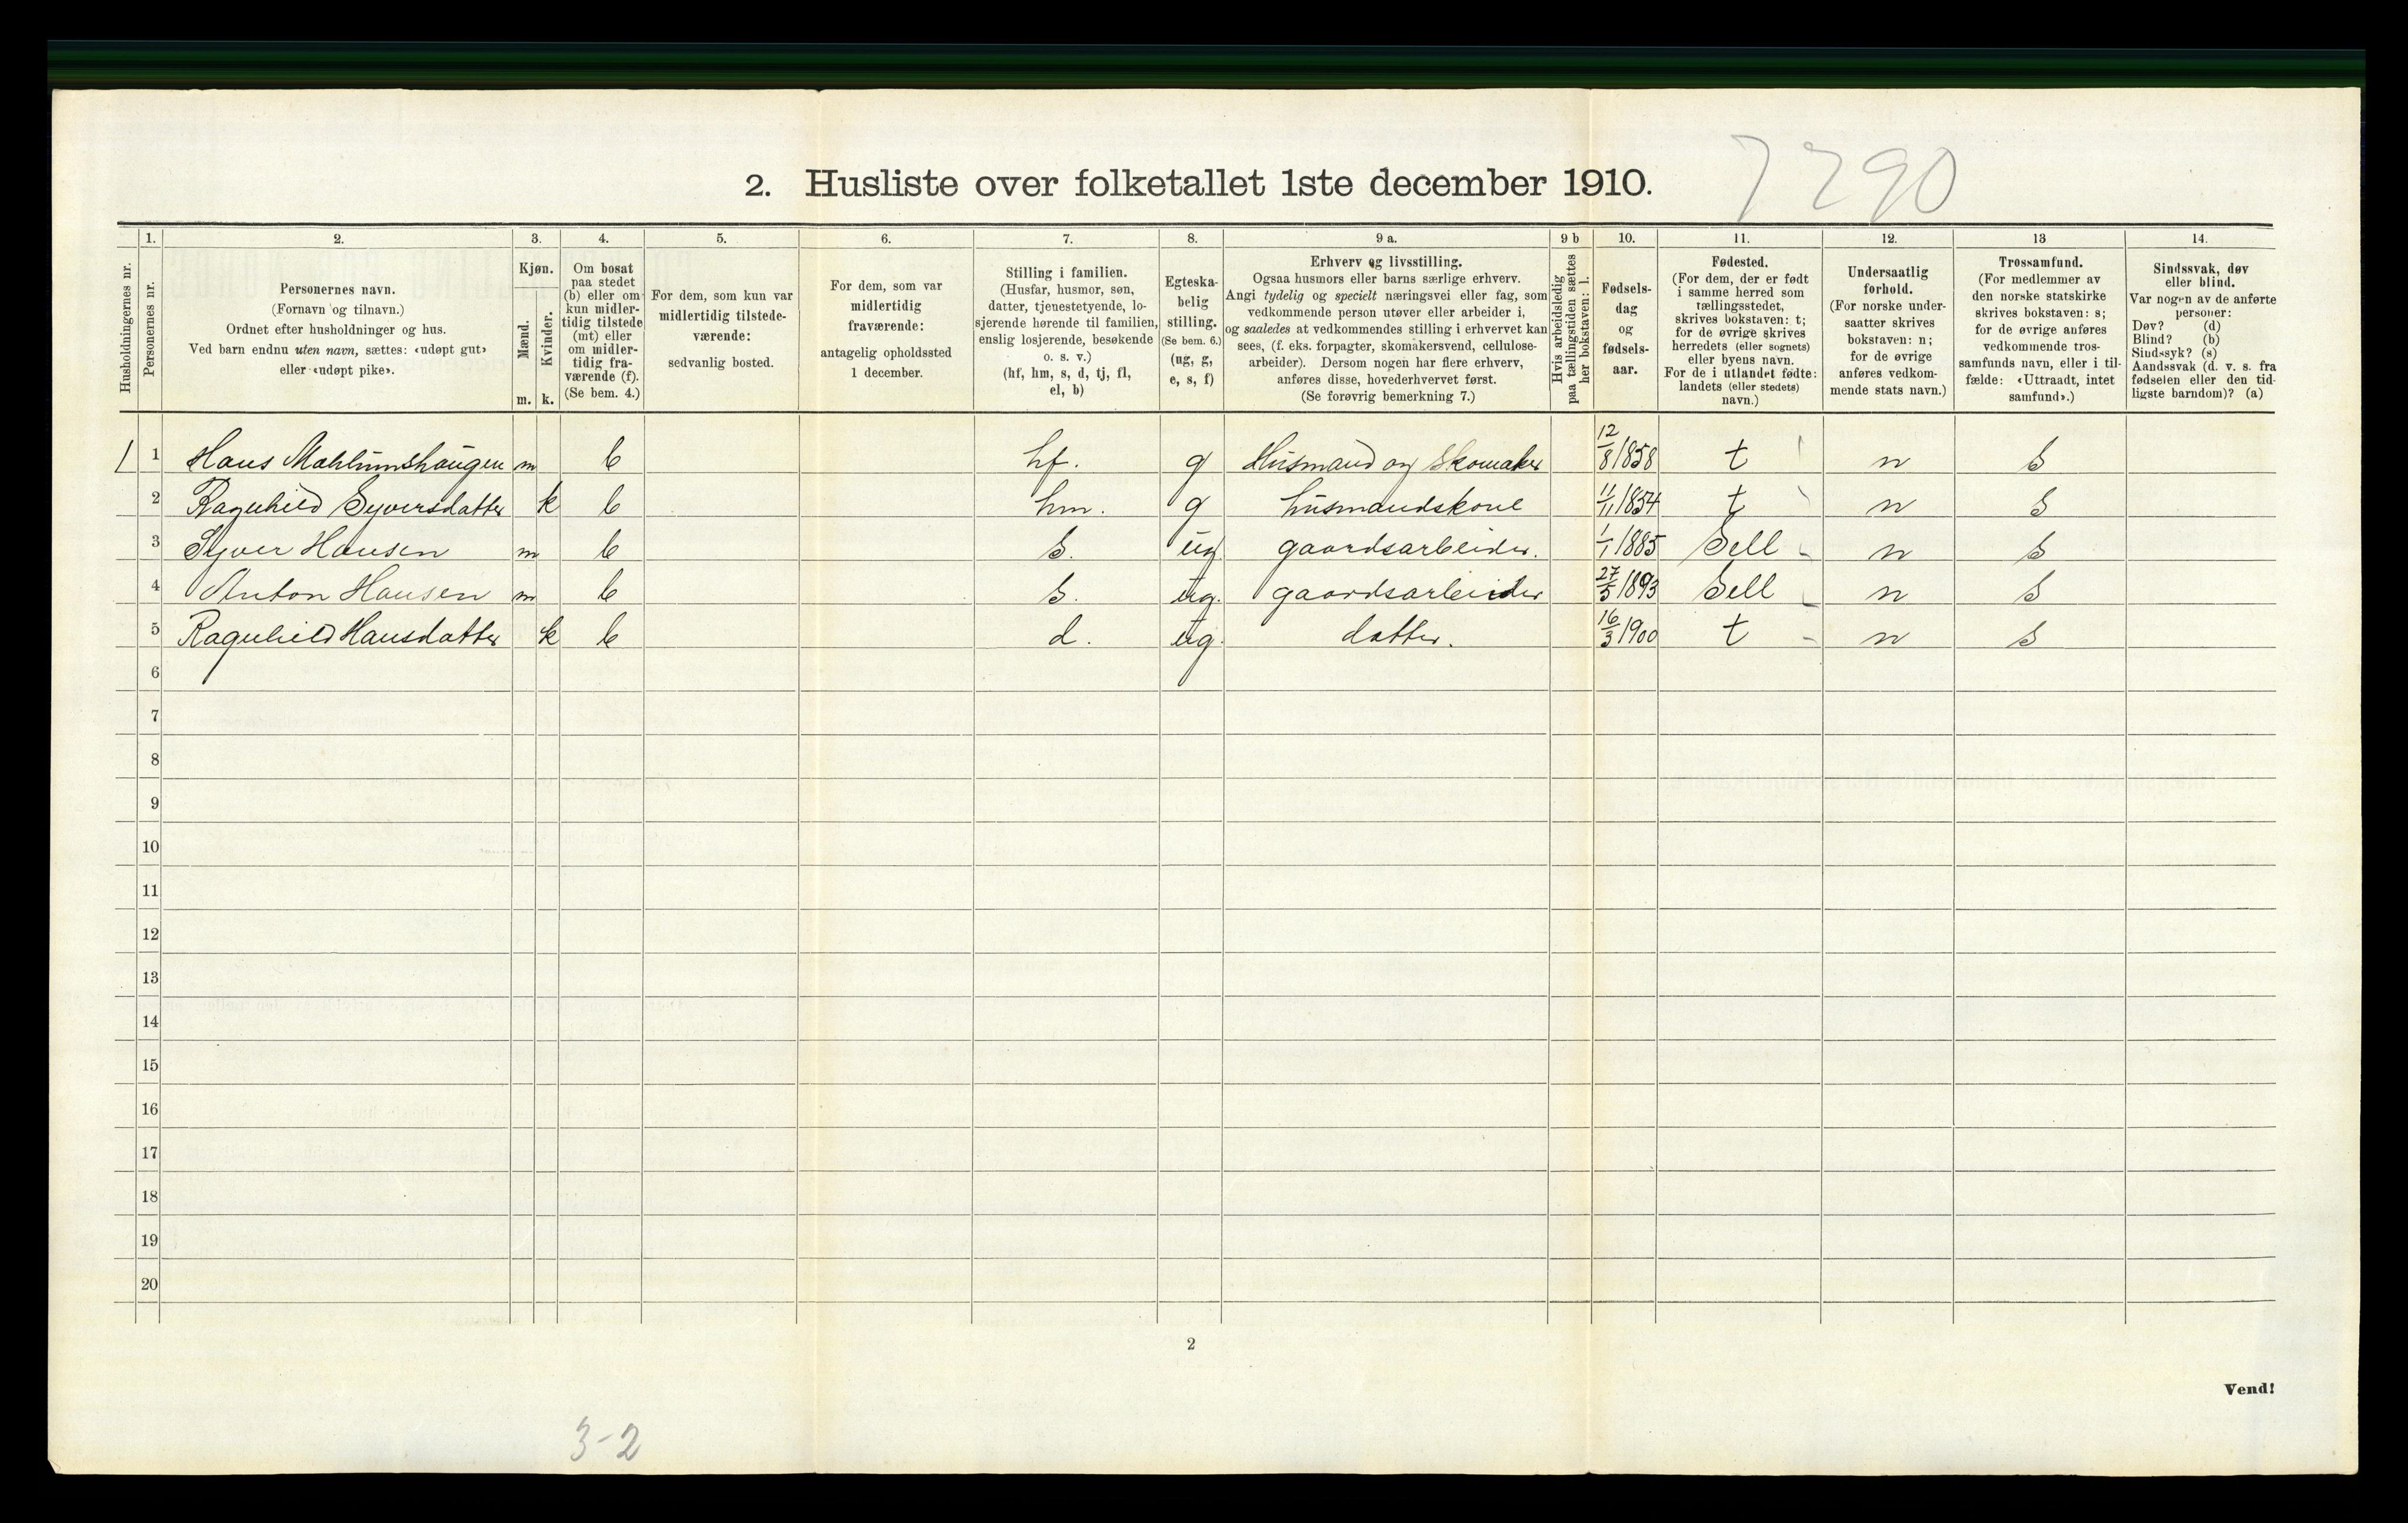 2. Husliste over folketallet 1ste december 1910.
7290
Husholdningernes nr.
1. Personernes nr.
2. Personernes navn.
(Fornavn og tilnavn.)
Ordnet efter husholdninger og hus.
Ved barn endnu uten navn, sættes: «udøpt gut»
eller «udøpt pike».
3. Kjøn.
Mænd. m.
Kvinder. k.
4. Om bosat
paa stedet
(b) eller om
kun midler-
tidig tilstede
(mt) eller
om midler-
tidig fra-
værende (f).
(Se bem. 4.)
5. For dem, som kun var
midlertidig tilstede-
værende:
sedvanlig bosted.
6. For dem, som var
midlertidig
fraværende:
antagelig opholdssted
1 december.
7. Stilling i familien.
(Husfar, husmor, søn,
datter, tjenestetyende, lo-
sjerende hørende til familien,
enslig losjerende, besøkende
o. s. v.)
(hf, hm, s, d, tj, fl,
el, b)
8. Egteska-
belig
stilling.
(Se bem. 6.)
(ug, g,
e, s, f)
9 a. Erhverv og livsstilling.
Ogsaa husmors eller barns særlige erhverv.
Angi tydelig og specielt næringsvei eller fag, som
vedkommende person utøver eller arbeider i,
og saaledes at vedkommendes stilling i erhvervet kan
sees, (f. eks. forpagter, skomakersvend, cellulose-
arbeider). Dersom nogen har flere erhverv,
anføres disse, hovederhvervet først.
(Se forøvrig bemerkning 7.)
9 b Hvis arbeidsledig
paa tællingstiden sættes
her bokstaven: l.
10. Fødsels-
dag
og
fødsels-
aar.
11. Fødested.
(For dem, der er født
i samme herred som
tællingsstedet,
skrives bokstaven: t;
for de øvrige skrives
herredets (eller sognets)
eller byens navn.
For de i utlandet fødte:
landets (eller stedets)
navn.)
12. Undersaatlig
forhold.
(For norske under-
saatter skrives
bokstaven: n;
for de øvrige
anføres vedkom-
mende stats navn.)
13 Trossamfund.
(For medlemmer av
den norske statskirke
skrives bokstaven: s;
for de øvrige anføres
vedkommende tros-
samfunds navn, eller i til-
fælde: «Uttraadt, intet
samfund».)
14. Sindssvak, døv
eller blind.
Var nogen av de anførte
personer:
Døv? (d)
Blind? (b)
Sindssyk? (s)
Aandssvak (d. v. s. fra
fødselen eller den tid-
ligste barndom)? (a)
1 1 Hans Mahlumshaugen m b hf. g Husmand og Skomaker 12/8 1858 t n S
2 Ragnhild Syversdatter k b hm. g husmandskone 11/11 1854 t n S
3 Syver Hansen m b S. ug gaardsarbeider. 1/1 1885 Sell n S
4 Anton Hansen m b S. ug. gaardsarbeider 27/5 1893 Sell n S
5 Ragnhild Hansdatter k b d. ug. datter. 16/3 1900 t n S
6
7
8
9
10
11
12
13
14
15
16
17
18
19
20
2
Vend!
3-2